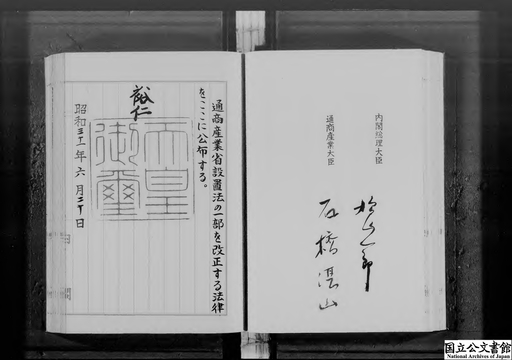 内閣総理大臣
鳩山一郎
通商産業大臣
石橋湛山
通商産業省設置法の一部を改正する法律
をここに公布する。
裕仁
天皇
御璽
昭和三十一年六月二十日
国立公文書館
National Archives of Japan